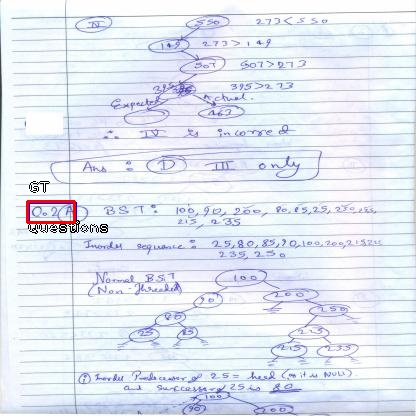 IV 550 273<550
149 273>149
507 507>273
395 395>273
Expected Actual
463
∴ IV is incorrect
Ans : D III only
GT
Q.2 A BST: 100, 90, 200, 80, 85, 25, 250,
215, 235
Questions
Inorder sequence : 25, 80, 85, 90, 100, 200, 215
235, 250
Normal BST
(Non-Threaded)
100
90 200
80 250
25 85 225
215 235
(i) Inorder Predecessor of 25 = head (as it is NULL).
and successor of 25 is 80
100
90 200